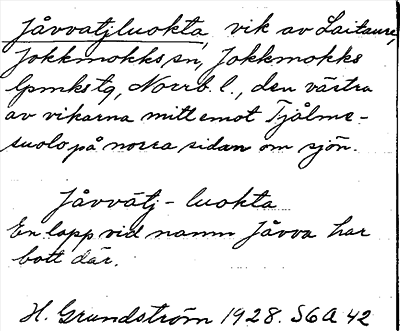 Jåvvatjluokta, vik av Laitaure,
Jokkmokks sn, Jokkmokks
lpmkstg, Norrb. l., den västra
av vikarna mitt emot Tjålme-
suolo på norra sidan om sjön.
Jåvvàtj-luokta
En lapp vid namn Jåvva har
bott där.
H. Grundström 1928. S6A 42